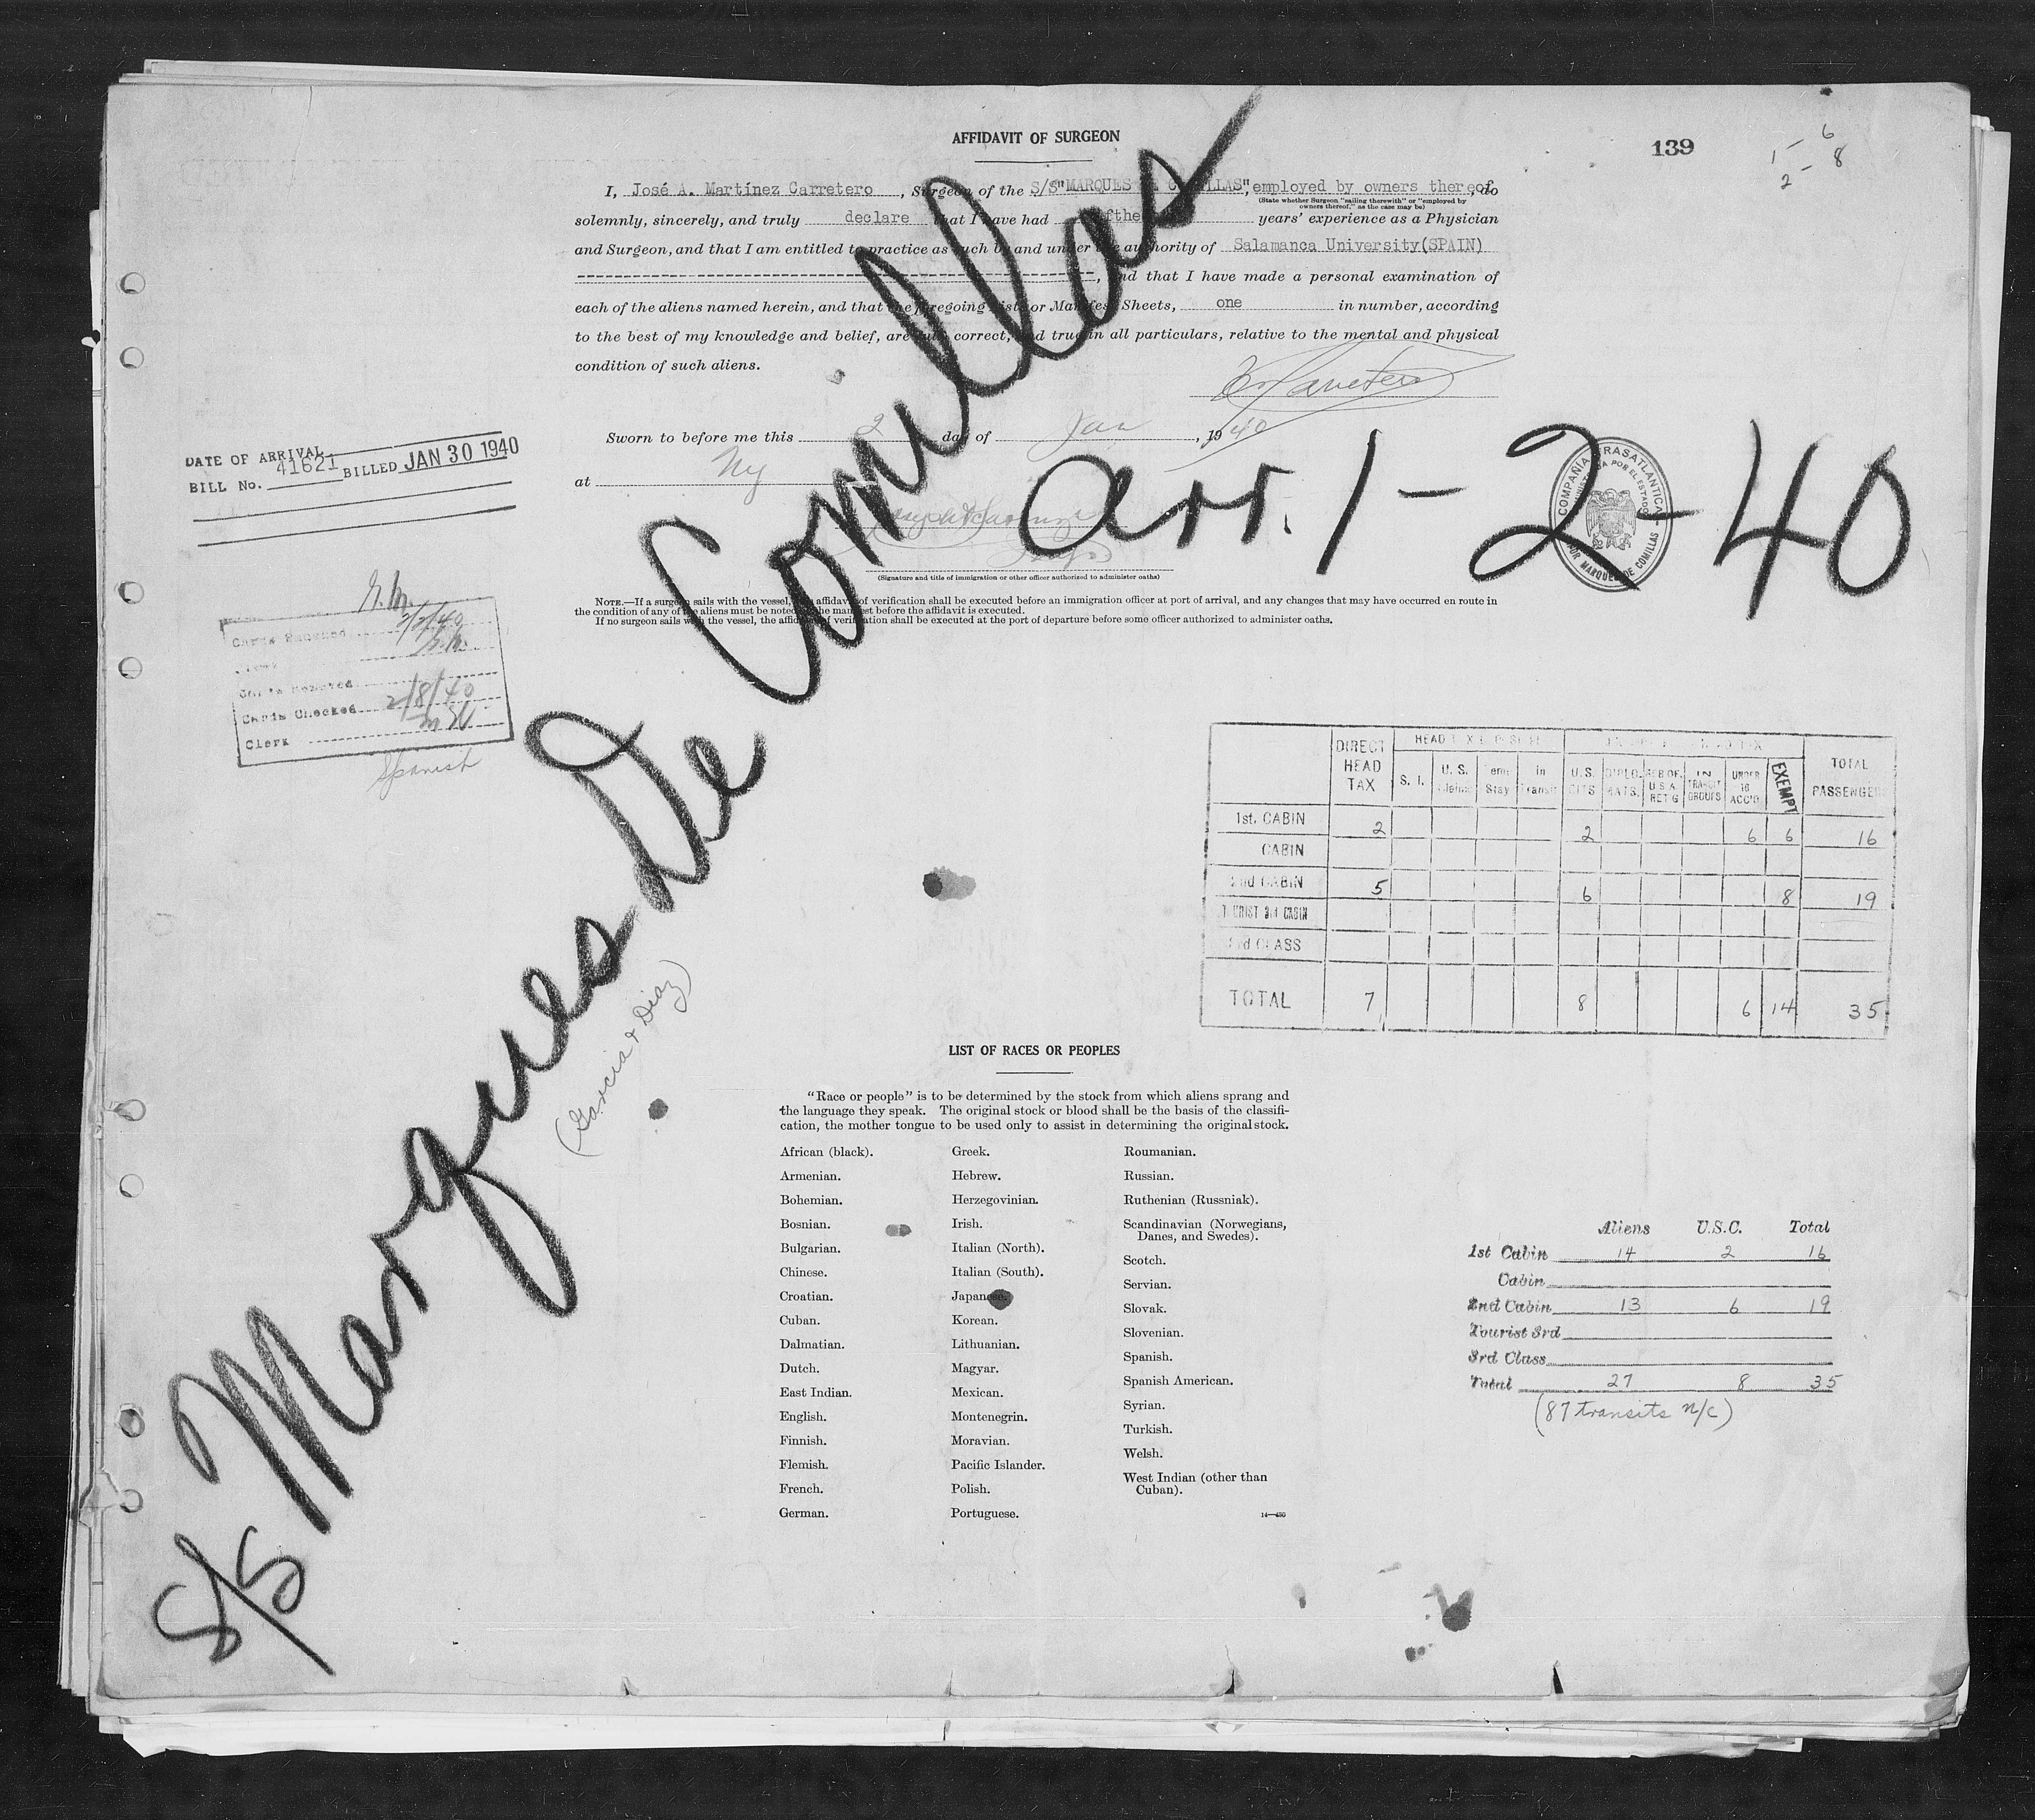 AFFIDAVIT OF SURGEON
139
6
1 - 8
2 -
I, José A. Martínez Carretero, Surgeon of the S/S"MARQUES DE COMILLAS", employed by owners thereof, do
(State whether Surgeon "sailing therewith" or "employed by
owners thereof," as the case may be)
solemnly, sincerely, and truly declare that I have had years' experience as a Physician
and Surgeon, and that I am entitled to practice as such by and under the authority of Salamanca University(SPAIN)
, and that I have made a personal examination of
each of the aliens named herein, and that the foregoing Lists or Manifest Sheets, one in number, according
to the best of my knowledge and belief, are full, correct, and true in all particulars, relative to the mental and physical
condition of such aliens.
Sworn to before me this 2 day of Jan, 1940
at Ny
(Signature and title of immigration or other officer authorized to administer oaths)
NOTE.—If a surgeon sails with the vessel, the affidavit of verification shall be executed before an immigration officer at port of arrival, and any changes that may have occurred en route in
the condition of any of the aliens must be noted on the manifest before the affidavit is executed.
If no surgeon sails with the vessel, the affidavit of verification shall be executed at the port of departure before some officer authorized to administer oaths.
S/S Marques De Comillas
arr. 1-2-40
(Garcia & Diaz)
COMPAÑIA TRASATLANTICA
POR EL ESTADO
VAPOR MARQUES DE COMILLAS
DATE OF ARRIVAL
BILL No. 41621 BILLED JAN 30 1940
Cards 2/2/40
Cards Checked 2/8/40
Clerk
Spanish
DIRECT HEAD TAX
S. I. U. S. Stay in Transit U. S. CITS DIPLOMATS. U.S.A. RET'G IN TRANSIT GROUPS UNDER 16 ACC'D EXEMPT TOTAL PASSENGERS
1st. CABIN 2 2 6 6 16
CABIN
2nd CABIN 5 6 8 19
TOURIST 3rd CABIN
3rd CLASS
TOTAL 7 8 6 14 35
LIST OF RACES OR PEOPLES
"Race or people" is to be determined by the stock from which aliens sprang and
the language they speak. The original stock or blood shall be the basis of the classifi-
cation, the mother tongue to be used only to assist in determining the original stock.
African (black).
Armenian.
Bohemian.
Bosnian.
Bulgarian.
Chinese.
Croatian.
Cuban.
Dalmatian.
Dutch.
East Indian.
English.
Finnish.
Flemish.
French.
German.
Greek.
Hebrew.
Herzegovinian.
Irish.
Italian (North).
Italian (South).
Japanese.
Korean.
Lithuanian.
Magyar.
Mexican.
Montenegrin.
Moravian.
Pacific Islander.
Polish.
Portuguese.
Roumanian.
Russian.
Ruthenian (Russniak).
Scandinavian (Norwegians,
Danes, and Swedes).
Scotch.
Servian.
Slovak.
Slovenian.
Spanish.
Spanish American.
Syrian.
Turkish.
Welsh.
West Indian (other than
Cuban).
14—430
Aliens U.S.C. Total
1st Cabin 14 2 16
Cabin
2nd Cabin 13 6 19
Tourist 3rd
3rd Class
Total 27 8 35
(87 transits n/c)